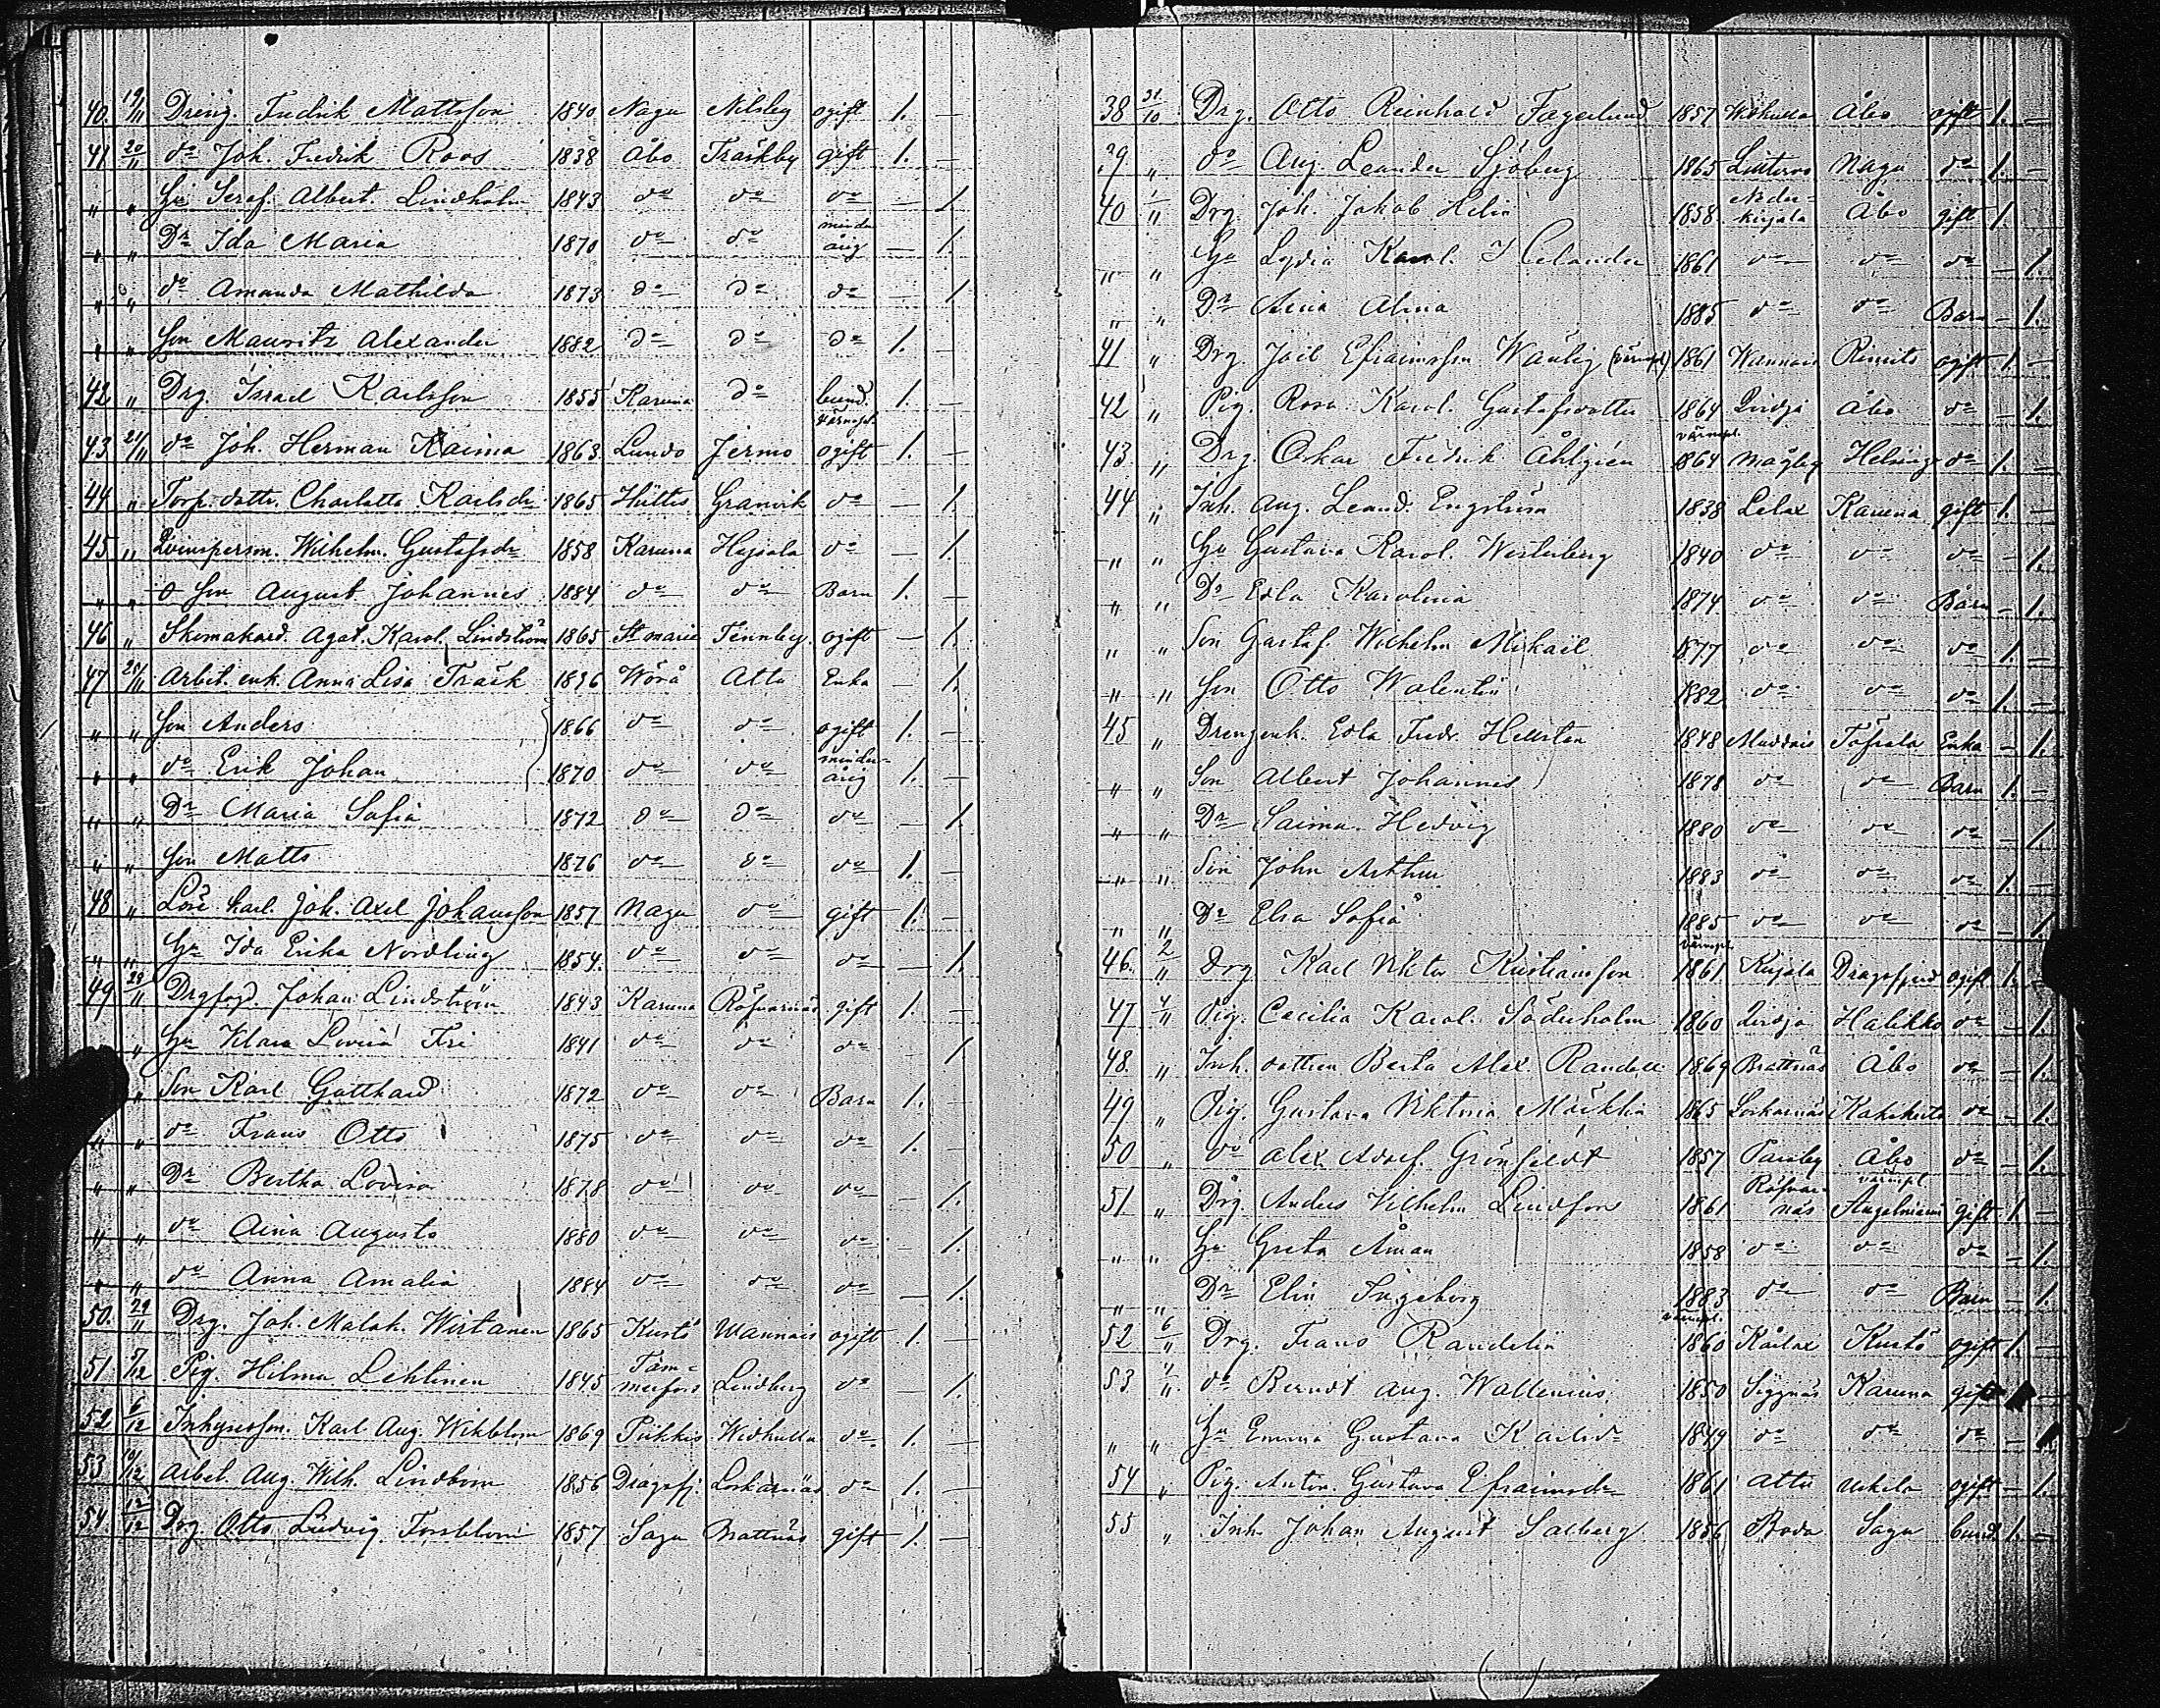 40. 19/11 Dreng. Fredrik Mattsson 1840 Nagu Nilsby ogift 1. —
41 20/11 do Joh. Fredrik Roos 1838 Åbo Träskby gift 1. —
„ „ Hu Seraf. Albert. Lindholm 1843 do do do — 1.
„ „ Dr Ida Maria 1870 do do minderårig — 1.
„ „ do Amanda Mathilda 1873 do do do — 1
„ „ Son Mauritz Alexander 1882 do do do 1. —
42 „ Drg. Israel Karlsson 1855 Karuna do 1. —
43 21/11 do Joh. Herman Kaima 1863 Lundo Jermo värnepl. ogift 1. —
44 „ Torp. dottr. Charlotta Karlsdr 1865 Hittis Granvik do — 1.
45 „ Qvinsperson. Wilhelm. Gustafsdr 1858 Karuna Hajsala do — 1.
„ „ o Son August Johannes 1884 do do Barn 1. —
46 „ Skomakard. Agat. Karol. Lindström 1865 St Marie Tennby ogift — 1.
47 25/11 Arbet. enk. Anna Lisa Träsk 1836 Wörå Attu Enka — 1.
„ „ Son Anders 1866 do do ogift 1. —
„ „ do Erik Johan 1870 do do minderårig 1. —
„ „ Dr Maria Sofia 1872 do do do — 1.
„ „ Son Matts 1876 do do do 1. —
48 „ karl. Joh. Axel Johansson 1857 Nagu do gift 1. —
„ „ Hu Ida Erika Nordling 1854. do do do — 1.
49 28/11 Drgfogd. Johan Lindström 1843 Karuna Röfvarnäs gift 1. —
„ Hu Klara Lovisa Fri 1841 do do do — 1
„ Son Karl Gotthard 1872 do do Barn 1. —
„ „ do Frans Otto 1875 do do do 1. —
„ „ Dr Bertha Lovisa 1878 do do do — 1.
„ „ do Aina Augusta 1880 do do do — 1.
„ „ do Anna Amalia 1884 do do do — 1.
50. 29/11 Drg. Joh. Malak. Wirtanen 1865 Kustö Wannais ogift 1. —
51. 5/12 Pig. Hilma Lehtinen 1845 Tammerfors Lindberg do — 1.
52 6/12 Inhysesson. Karl Aug. Wikblom 1869 Piikkis Widkulla do. 1. —
53 9/12 Arbet. Aug. Wilh. Lindbom 1856 Dragsfj. Loskarnäs do 1. —
54. 12/12 Drg. Otto Ludvig Forsblom 1857 Sagu Brattnäs gift 1. —
38 31/10 Drg. Otto Reinhold Fagerlund 1857 Widkulla Åbo ogift 1. —
39 „ do Aug. Leander Sjöberg 1865 Nagu do 1. —
40 1/11 Drg. Joh. Jakob Helin 1858 Nederkirjala Åbo gift 1.
„ „ Hu Lydia Karol. Helander 1861 do do do — 1.
„ „ Dr Aina Alina 1885 do do Barn — 1.
41 „ Drg. Joel Efraimsson Wänby (värnepl) 1861 Wannais Rimito ogift 1. —
42 „ Pig. Rosa Karol. Gustafsdotter 1864 Qvidja Åbo do — 1.
43 „ Drg. Oskar Fredrik Åhlgrén värnepl. 1864 Mågby Helsinge do 1. —
44 „ Inh. Aug. Leand. Engström 1838 Lelax Karuna gift 1. —
„ „ Hu Gustava Karol. Westerberg 1840 do do do — 1.
„ „ Dr Edla Karolina 1874 do do Barn — 1.
„ „ Son Gustaf Wilhelm Mikael 1877 do do do 1. —
„ „ Son Otto Walentin 1882 do do do 1. —
45 „ Drengenk. Edla Fredr. Hellsten 1848 Muddais Töfsala Enka — 1.
„ „ Son Albert Johannes 1878 do do Barn 1. —
„ „ Dr Saima Hedvig 1880 do do do — 1.
„ „ Son John Arthur 1883 do do do 1. —
„ „ Dr Elsa Sofia 1885 do do do — 1.
46. 2/11 Drg. Karl Viktor Kristiansson värnepl. 1861. Kirjala Dragsfjerd ogift 1. —
47 4/11 Pig. Cecilia Karol. Söderholm 1860 Qvidja Halikko do — 1.
48. „ Inh. dottren Berta Alex. Randell 1869 Brattnäs Åbo do — 1.
49 „ Pig. Gustava Viktoria 1865 Loskarnäs Kakskerta do — 1.
50 „ do Alex. Adolf. Grönfeldt 1857 Parsby Åbo do — 1.
51 „ Drg. Anders Vilhelm Lindfors 1861 Röfvarnäs värnepl Angelniemi gift 1 —
„ „ Hu Greta Åman 1858 do do do — 1.
„ „ Dr Elin Ingeborg 1883 do do Barn — 1.
52 6/11 Drg. Frans Randelin värnepl. 1860 Kårlax Kustö ogift 1. —
53 7/11 do Berndt Aug. Wallenius 1850 Siggnäs Karuna gift 1 —
„ „ Hu Emma Gustava Karlsdr 1849 do do do — 1
54 „ Pig. Anton. Gustava Efraimsdr 1861 Attu Uskela ogift — 1.
55 „ Inh. Johan August Salberg 1856 Boda Sagu 1. —